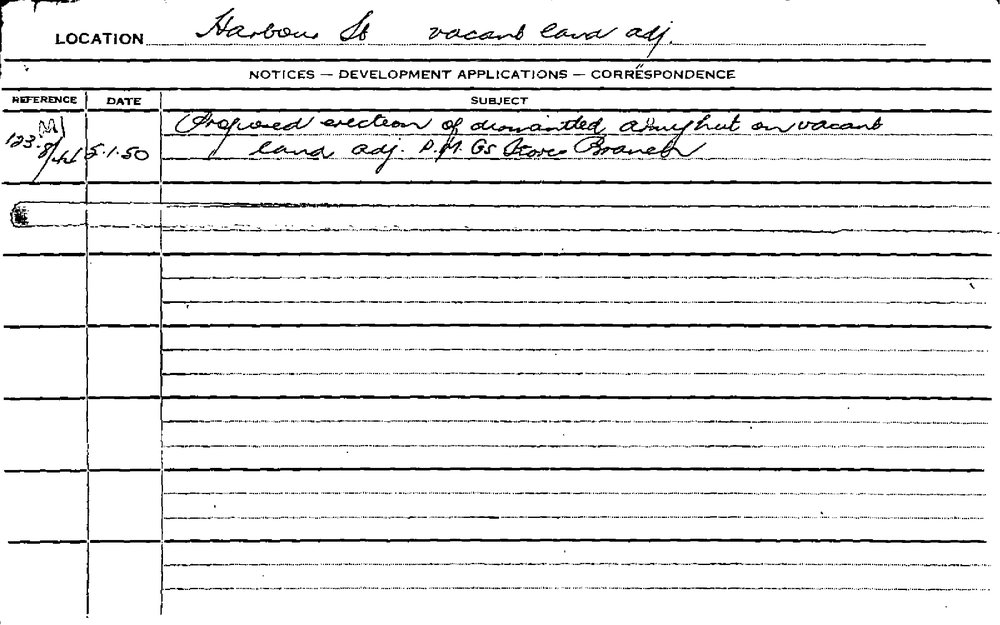 LOCATION Harbour St vacant land adj.
NOTICES — DEVELOPMENT APPLICATIONS — CORRESPONDENCE
REFERENCE DATE SUBJECT
123. 5.1.50 Proposed erection of dismantled army hut on vacant
land adj. P.M.Gs Store Branch